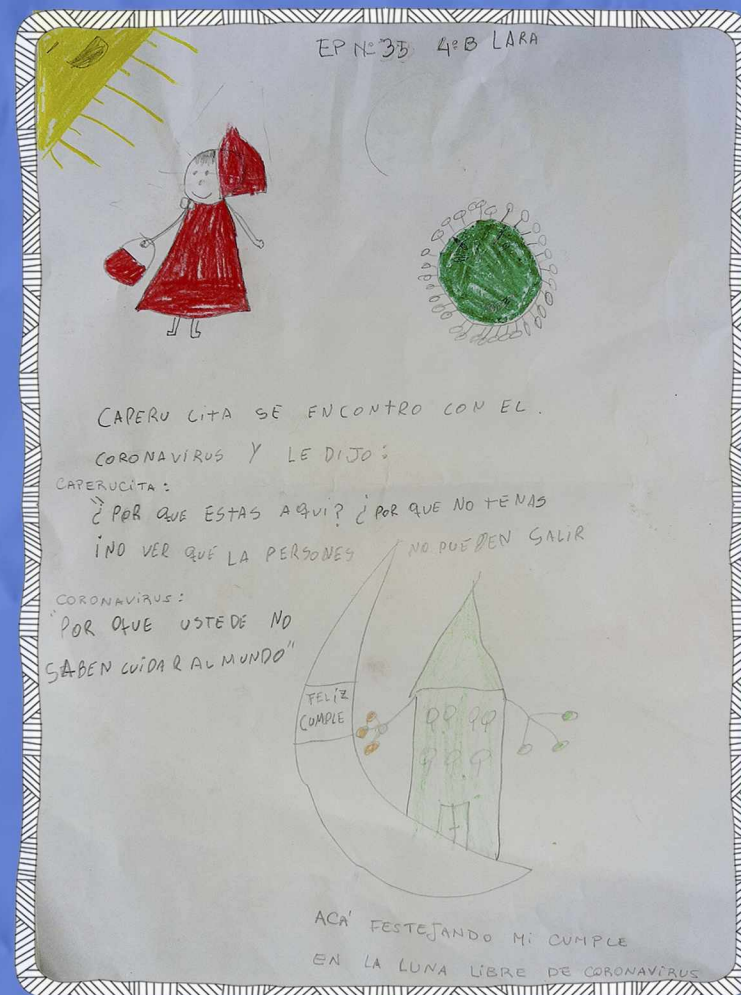 EP Nº 35 4º B LARA
CAPERU CITA SE ENCONTRO CON EL.
CORONAVIRUS Y LE DIJO:
CAPERUCITA:
"¿POR QUE ESTAS AQUI? ¿POR QUE NO TE VAS
¡NO VER QUE LA PERSONES NO PUEDEN SALIR
CORONAVIRUS:
"POR QUE USTEDE NO
SABEN CUIDAR AL MUNDO"
FELIZ
CUMPLE
ACÁ FESTEJANDO MI CUMPLE
EN LA LUNA LIBRE DE CORONAVIRUS